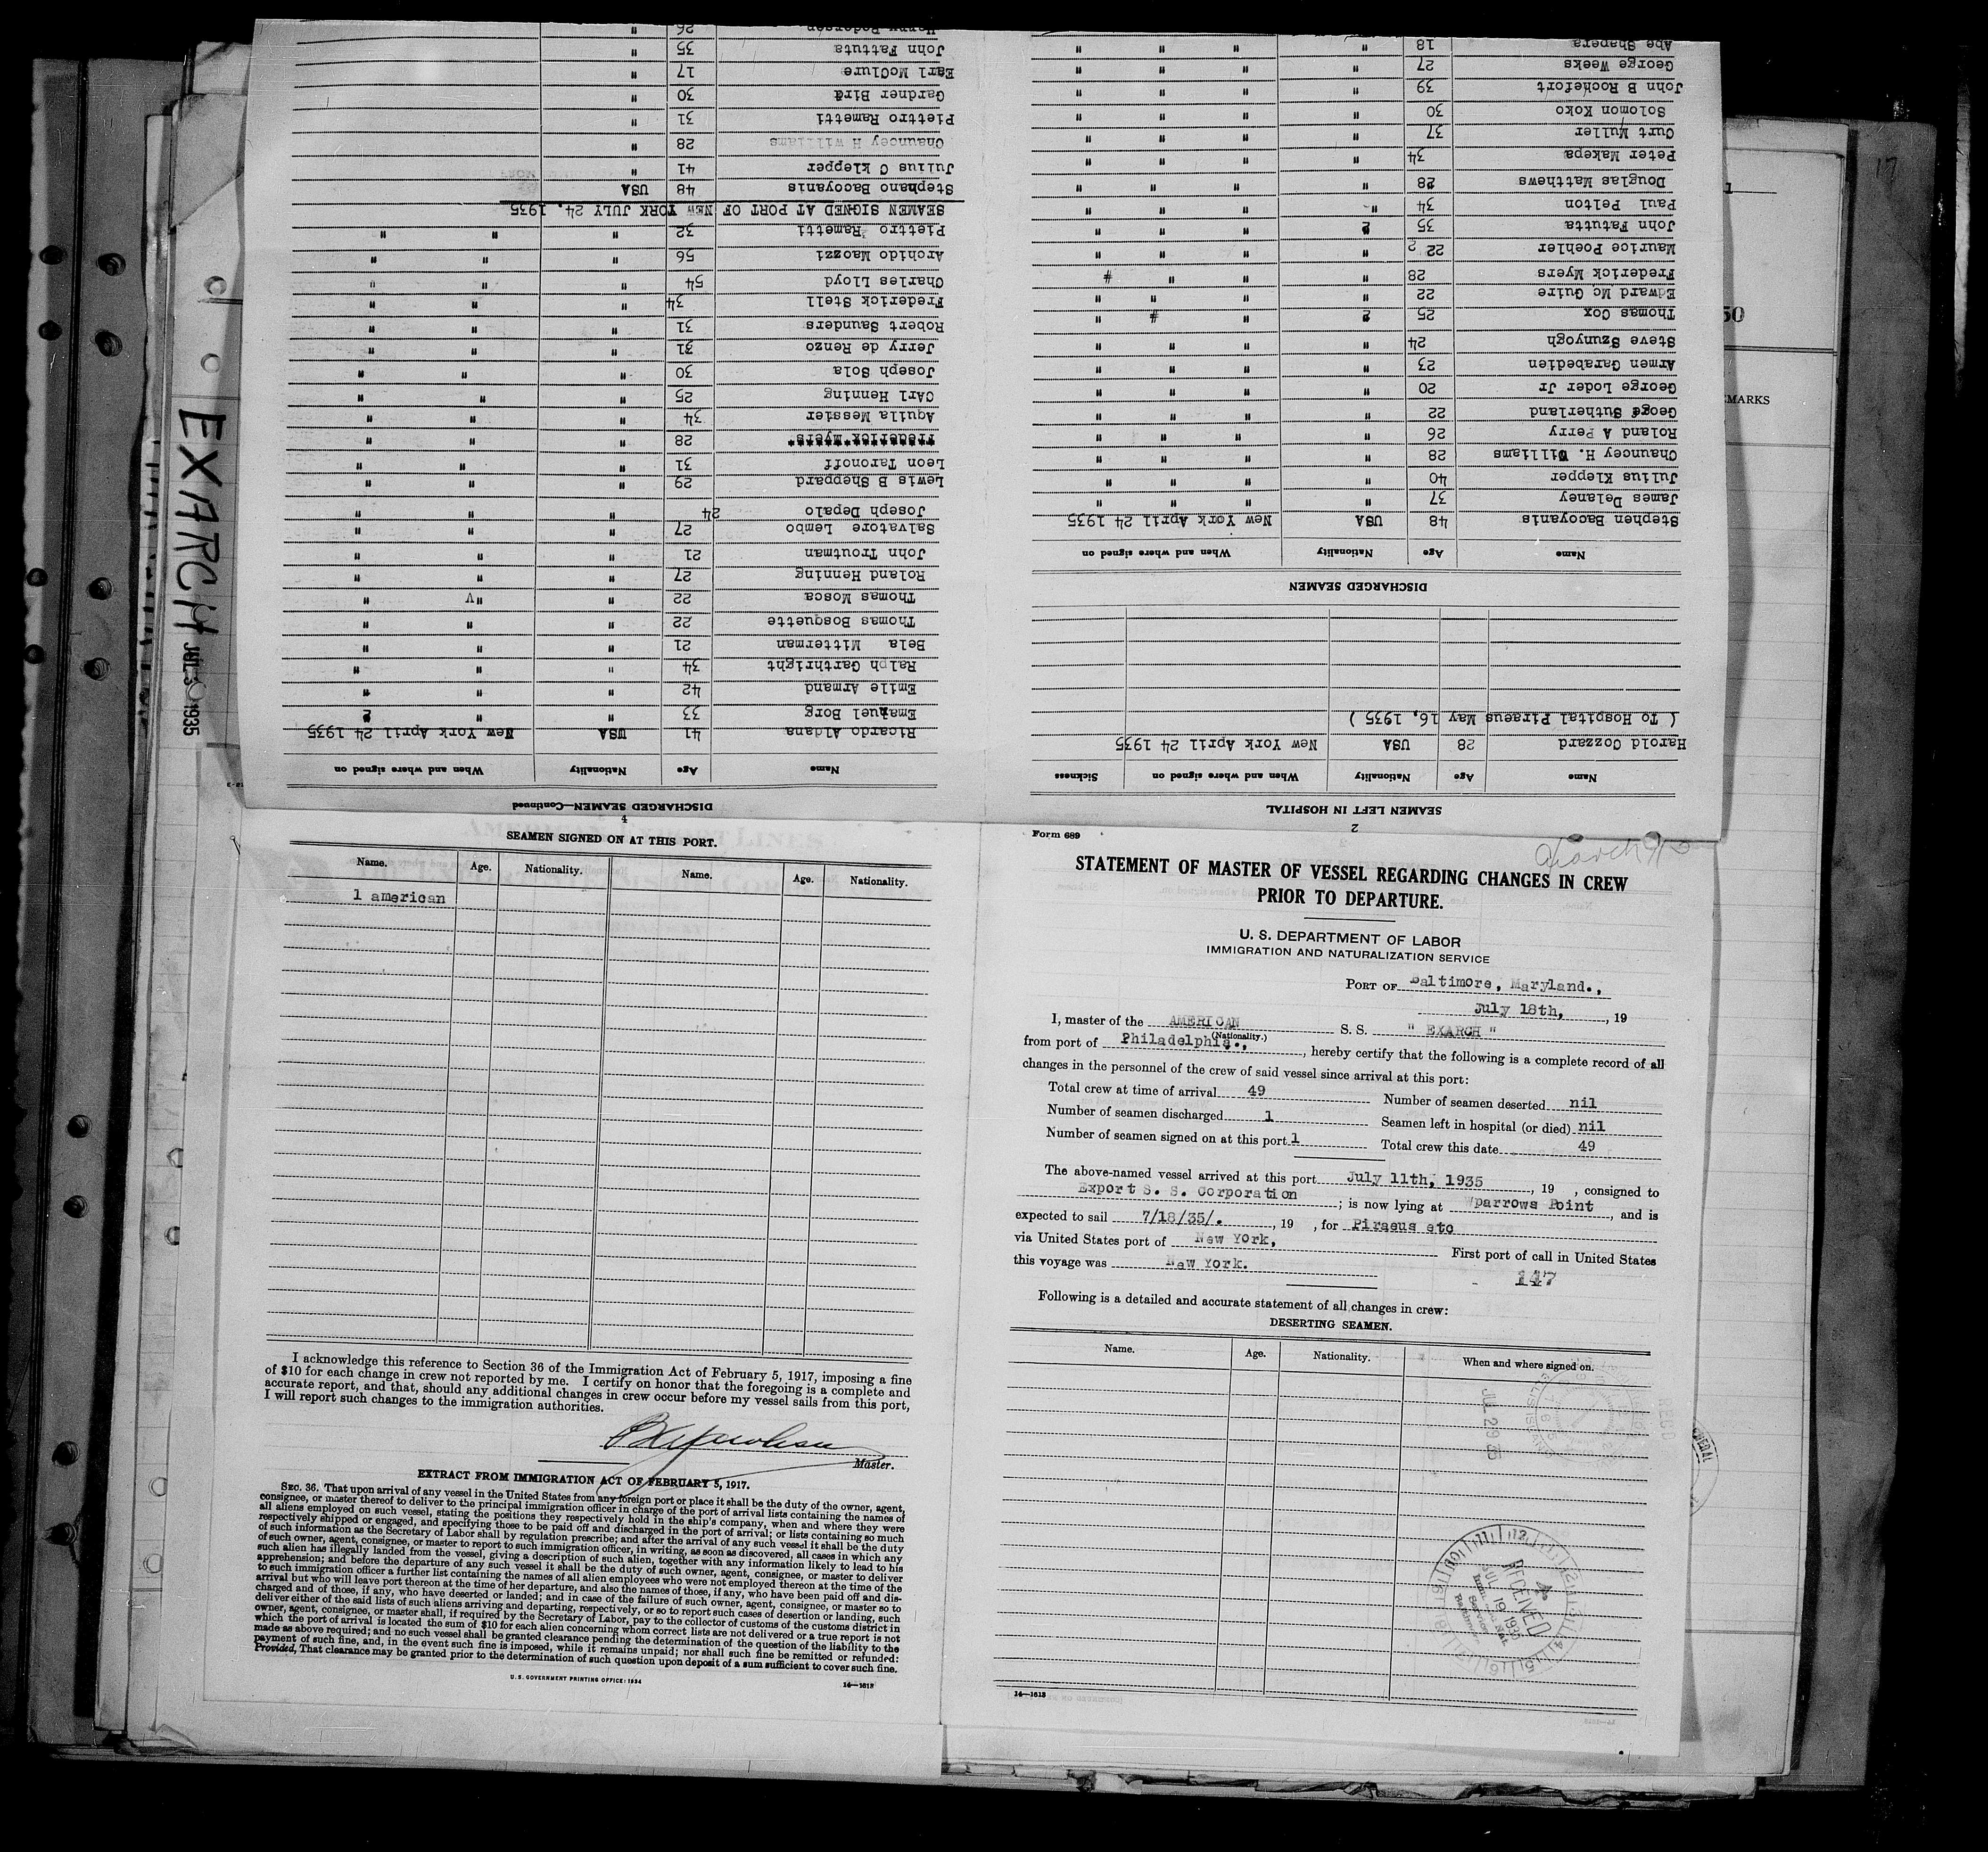 EXARCH JUL 30 1935
17
50
EMARKS
2
SEAMEN LEFT IN HOSPITAL
Name Age Nationality When and where signed on Sickness
Harold Cozzard 28 USA New York April 24 1935
( To Hospital Piraeus May 16, 1935 )
DISCHARGED SEAMEN
Name Age Nationality When and where signed on
Stephen Bacoyanis 48 USA New York April 24 1935
James Delaney 37 " " " "
Julius Klepper 40 " " " "
Chauncey H. Williams 28 " " " "
Roland A Perry 26 " " " "
Geoge Sutherland 22 " " " "
George Loder Jr 20 " " " "
Armen Garabedien 23 " " " "
Steve Szunyogh 24 " " " "
Thomas Cox 25 " " # "
Edward Mc Guire 22 " " " "
Frederick Myers 28 " " " #
Maurice Poehler 22 " " " "
John Fatutta 35 " " " "
Paul Pelton 34 " " " "
Douglas Matthews 28 " " " "
Peter Makepa 34 " " " "
Curt Muller 37 " " " "
Solomon Koko 30 " " " "
John B Rochefort 39 " " " "
George Weeks 27 " " " "
Abe Shapera 18 " " " "
4
DISCHARGED SEAMEN—Continued
Name Age Nationality When and where signed on
Ricardo Aldana 41 USA New York April 24 1935
Emanuel Borg 33 " " "
Emile Armand 42 " " "
Ralph Garthright 34 " " "
Bela Mitterman 21 " " "
Thomas Bosquette 22 " " "
Thomas Mosca 22 " "V "
Roland Henning 27 " " "
John Troutman 21 " " "
Salvatore Lembo 27 " " "
Joseph Depalo 24 " " "
Lewis B Sheppard 29 " " "
Leon Taronoff 31 " " "
Frederick Myers 28 " " "
Aquila Messier 34 " " "
CArl Henning 25 " " "
Joseph Sola 30 " " "
Jerry de Renzo 31 " " "
Robert Saunders 31 " " "
Frederick Stell 34 " " "
Charles Lloyd 54 " " "
Archido Maozzi 56 " " "
Piettro Rametti 32 " " "
SEAMEN SIGNED AT PORT OF NEW YORK JULY 24, 1935
Stephano Bacoyanis 48 USA
Julius C Klepper 41 "
Chauncey H Williams 28 "
Piettro Rametti 31 "
Gardner Bird 30 "
Earl McClure 17 "
John Fattuta 35 "
Henry Pedersen 26 "
SEAMEN SIGNED ON AT THIS PORT.
Name. Age. Nationality. Name. Age. Nationality.
1 american
I acknowledge this reference to Section 36 of the Immigration Act of February 5, 1917, imposing a fine
of $10 for each change in crew not reported by me. I certify on honor that the foregoing is a complete and
accurate report, and that, should any additional changes in crew occur before my vessel sails from this port,
I will report such changes to the immigration authorities.
Master.
EXTRACT FROM IMMIGRATION ACT OF FEBRUARY 5, 1917.
SEC. 36. That upon arrival of any vessel in the United States from any foreign port or place it shall be the duty of the owner, agent,
consignee, or master thereof to deliver to the principal immigration officer in charge of the port of arrival lists containing the names of
all aliens employed on such vessel, stating the positions they respectively hold in the ship's company, when and where they were
respectively shipped or engaged, and specifying those to be paid off and discharged in the port of arrival; or lists containing so much
of such information as the Secretary of Labor shall by regulation prescribe; and after the arrival of any such vessel it shall be the duty
of such owner, agent, consignee, or master to report to such immigration officer, in writing, as soon as discovered, all cases in which any
such alien has illegally landed from the vessel, giving a description of such alien, together with any information likely to lead to his
apprehension; and before the departure of any such vessel it shall be the duty of such owner, agent, consignee, or master to deliver
to such immigration officer a further list containing the names of all alien employees who were not employed thereon at the time of the
arrival but who will leave port thereon at the time of her departure, and also the names of those, if any, who have been paid off and dis-
charged and of those, if any, who have deserted or landed; and in case of the failure of such owner, agent, consignee, or master so to
deliver either of the said lists of such aliens arriving and departing, respectively, or so to report such cases of desertion or landing, such
owner, agent, consignee, or master shall, if required by the Secretary of Labor, pay to the collector of customs of the customs district in
which the port of arrival is located the sum of $10 for each alien concerning whom correct lists are not delivered or a true report is not
made as above required; and no such vessel shall be granted clearance pending the determination of the question of the liability to the
payment of such fine, and, in the event such fine is imposed, while it remains unpaid; nor shall such fine be remitted or refunded:
Provided, That clearance may be granted prior to the determination of such question upon deposit of a sum sufficient to cover such fine.
U. S. GOVERNMENT PRINTING OFFICE: 1934 14—1613
Form 689
STATEMENT OF MASTER OF VESSEL REGARDING CHANGES IN CREW
PRIOR TO DEPARTURE.
U. S. DEPARTMENT OF LABOR
IMMIGRATION AND NATURALIZATION SERVICE
PORT OF Baltimore, Maryland.,
July 18th, , 19
I, master of the AMERICAN S. S. " EXARCH "
(Nationality.)
from port of Philadelphia., , hereby certify that the following is a complete record of all
changes in the personnel of the crew of said vessel since arrival at this port:
Total crew at time of arrival 49 Number of seamen deserted nil
Number of seamen discharged 1 Seamen left in hospital (or died) nil
Number of seamen signed on at this port 1 Total crew this date 49
The above-named vessel arrived at this port July 11th, 1935 , 19 , consigned to
Export S. S. Corporation ; is now lying at Sparrows Point , and is
expected to sail 7/18/35/. , 19 , for Piraeus etc
via United States port of New York, First port of call in United States
this voyage was New York.
147
Following is a detailed and accurate statement of all changes in crew:
DESERTING SEAMEN.
Name. Age. Nationality. When and where signed on.
JUL 29 35
RECEIVED
JUL 19 1935
14—1613